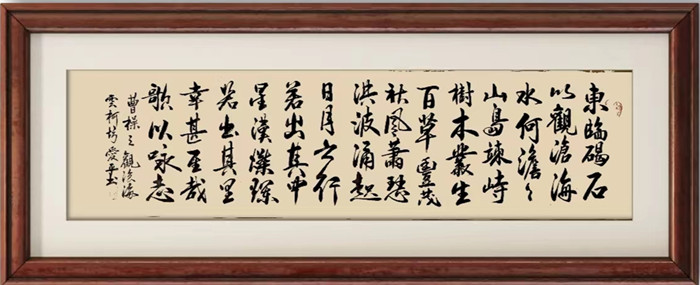 東臨碣石
以觀滄海
水何澹々
山島竦峙
樹木叢生
百草豐茂
秋風蕭瑟
洪波涌起
日月之行
若出其中
星漢燦爛
若出其里
幸甚至哉
歌以咏志
曹操之觀滄海
書